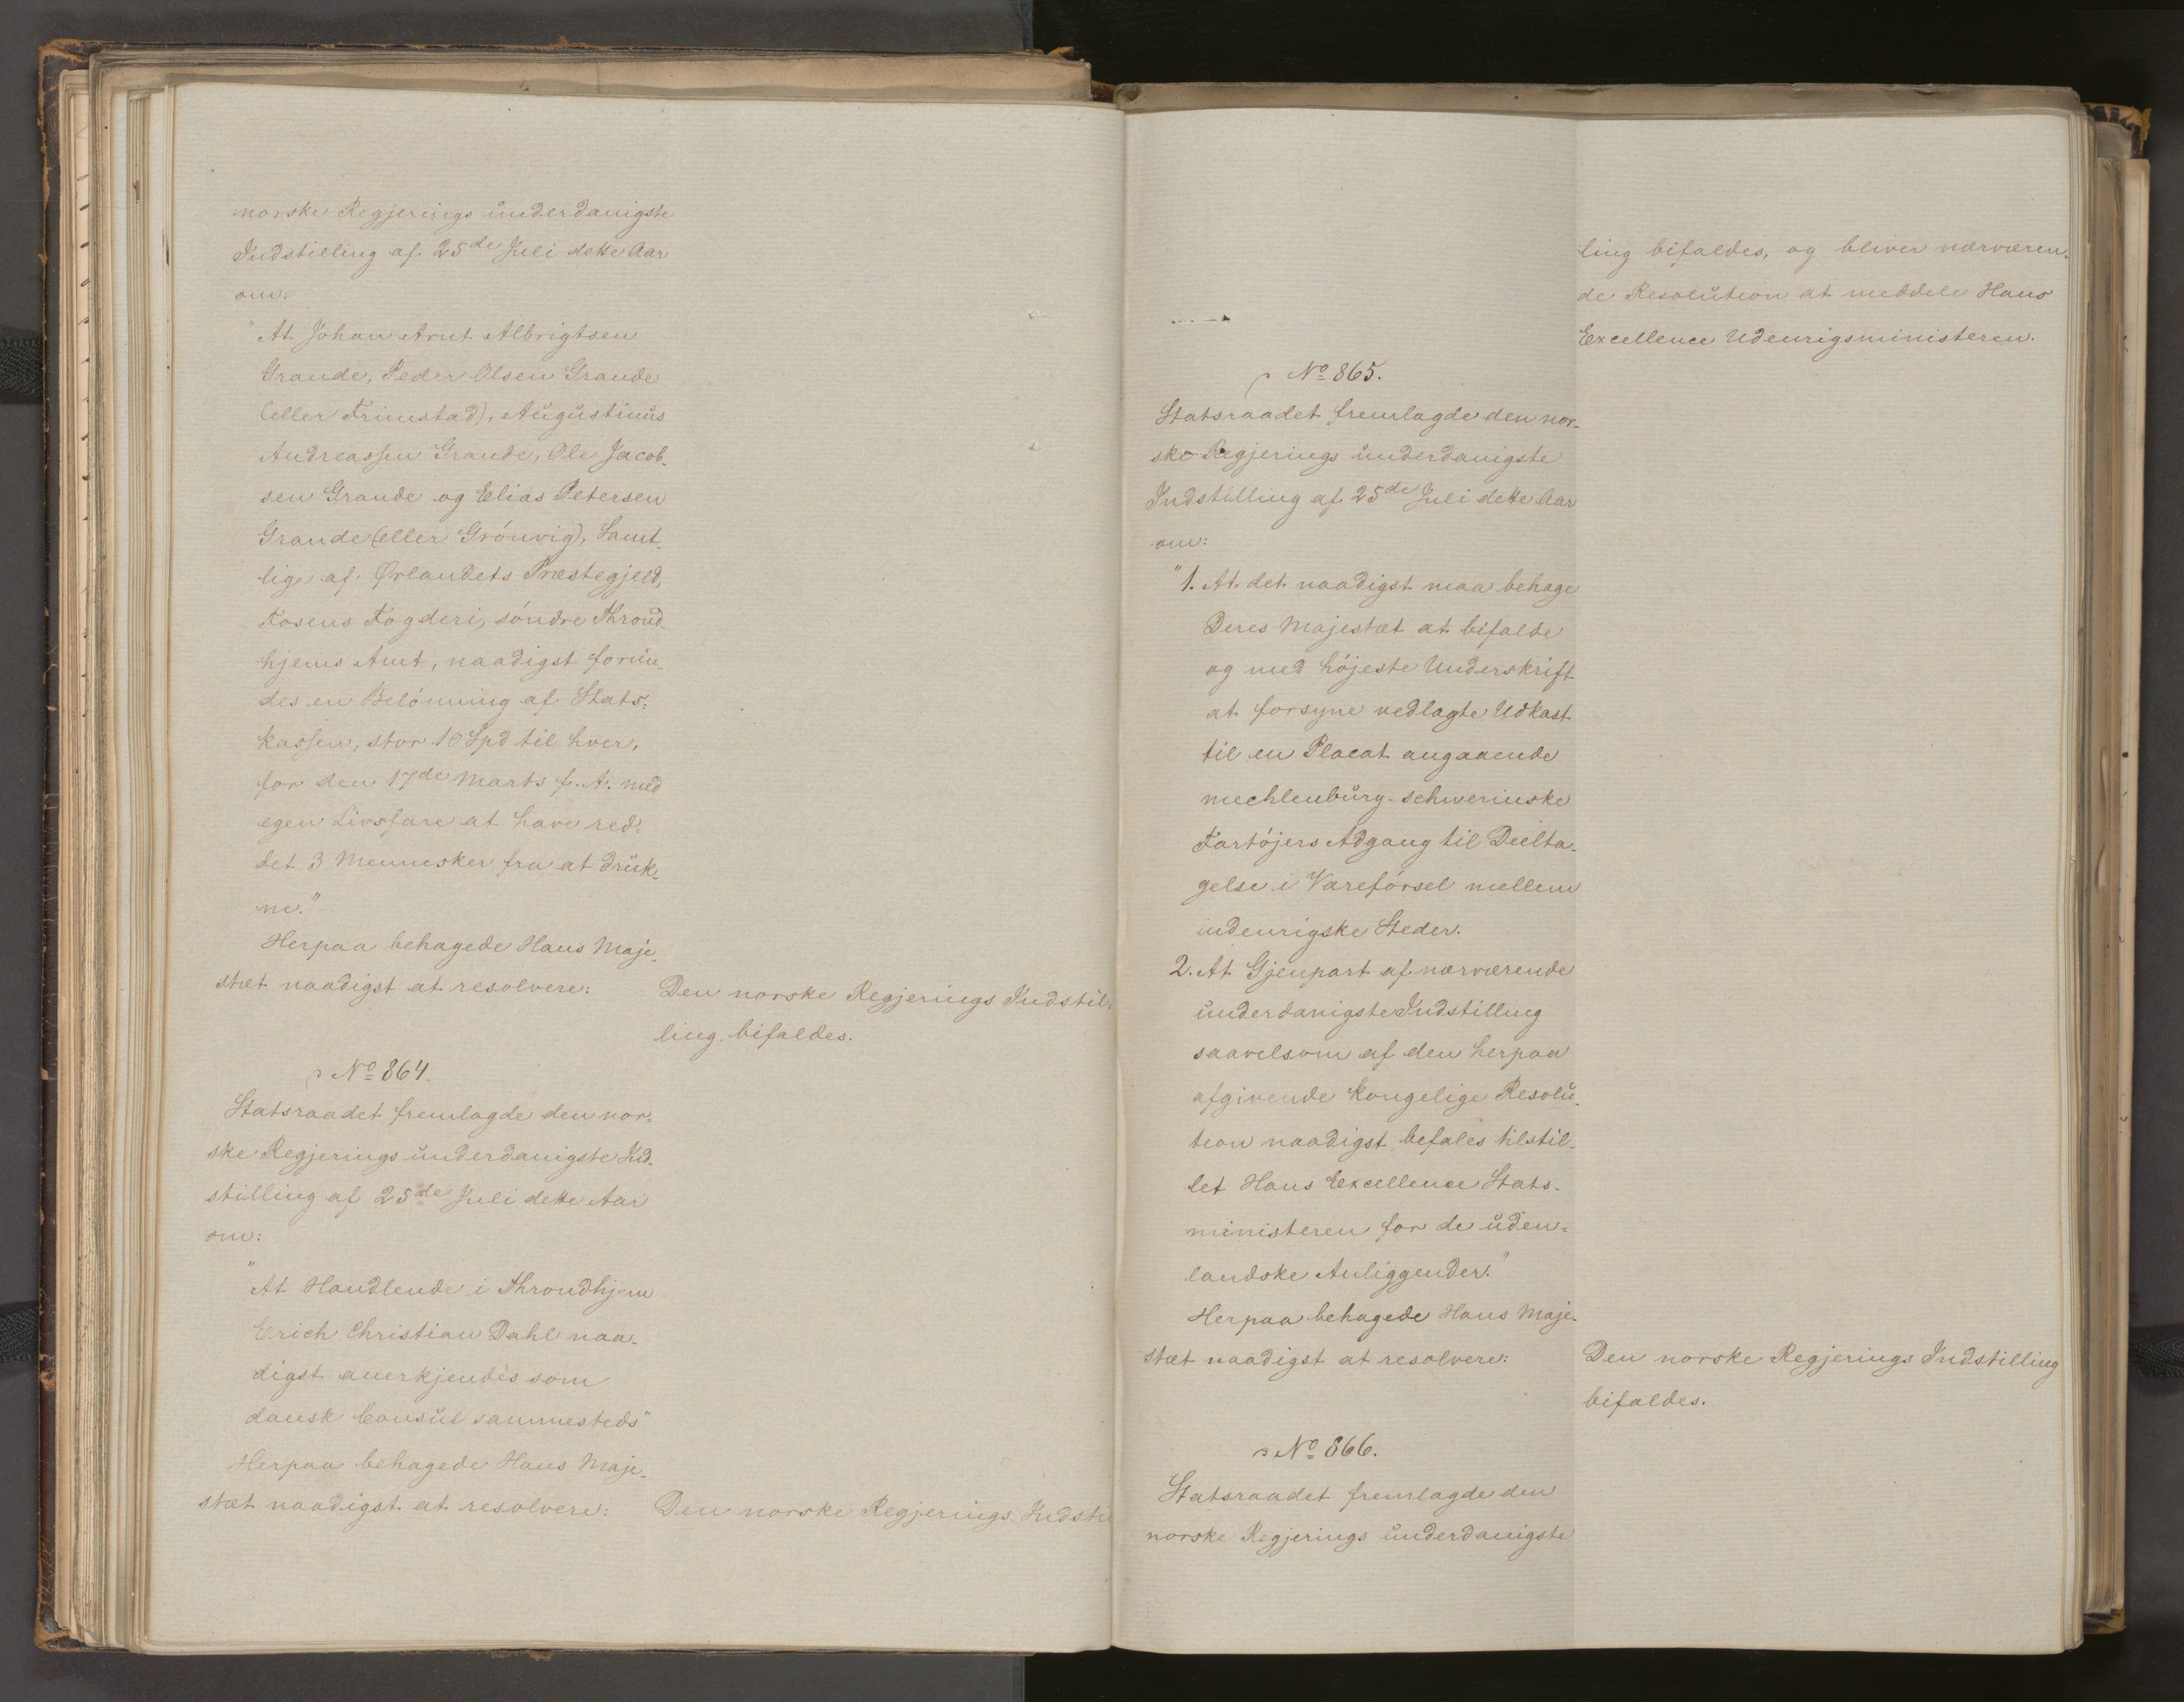 norske Regjerings underdanigste
Indstilling af 25de Juli dette Aar
om:
"At Johan Arnt Albrigtsen
Grande, Peder Olsen Grande
(eller Frimstad), Augustinus
Andreassen Grande, Ole Jacob-
sen Grande og Elias Petersen
Grande (eller Grönvig), Samt-
lige af Ørlandets Præstegjeld,
Fosens Fogderi, söndre Thrond-
hjems Amt, naadigst forün-
des en Belönning af Stats-
kassen, stor 10 Spd til hver,
for den 17de Marts f. A. med
egen Livsfare at have red-
det 3 Mennesker fra at druk-
ne."
Herpaa behagede Hans Maje-
stæt naadigst at resolvere:
Den norske Regjerings Indstil-
ling bifaldes.
No 864.
Statsraadet fremlagde den nor-
ske Regjerings underdanigste Ind-
stilling af 25de Juli dette Aar
om:
"At Handlende i Throndhjem
Erich Christian Dahl naa-
digst anerkjendes som
dansk Consul sammesteds"
Herpaa behagede Hans Maje-
stæt naadigst at resolvere:
Den norske Regjerings Indstil
ling bifaldes, og bliver nærværen-
de Resolution at meddele Hans
Excellence Udenrigsministeren.
No 865.
Statsraadet fremlagde den nor-
ske Regjerings underdanigste
Indstilling af 25de Juli dette Aar
om:
"1. At det naadigst maa behage
Deres Majestæt at bifalde
og med höjeste Underskrift
at forsyne vedlagte Udkast
til en Placat angaaende
mechlenburg-schwerinske
Fartöjers Adgang til Deelta-
gelse i Vareförsel mellem
indenrigske Steder.
2. At Gjenpart af nærværende
underdanigste Indstilling
saavelsom af den herpaa
afgivende kongelige Resolu-
tion naadigst befales tilstil-
let Hans Excellence Stats-
ministeren for de uden-
landske Anliggender."
Herpaa behagede Hans Maje-
stæt naadigst at resolvere:
Den norske Regjerings Indstilling
bifaldes.
No 866.
Statsraadet fremlagde den
norske Regjerings underdanigste